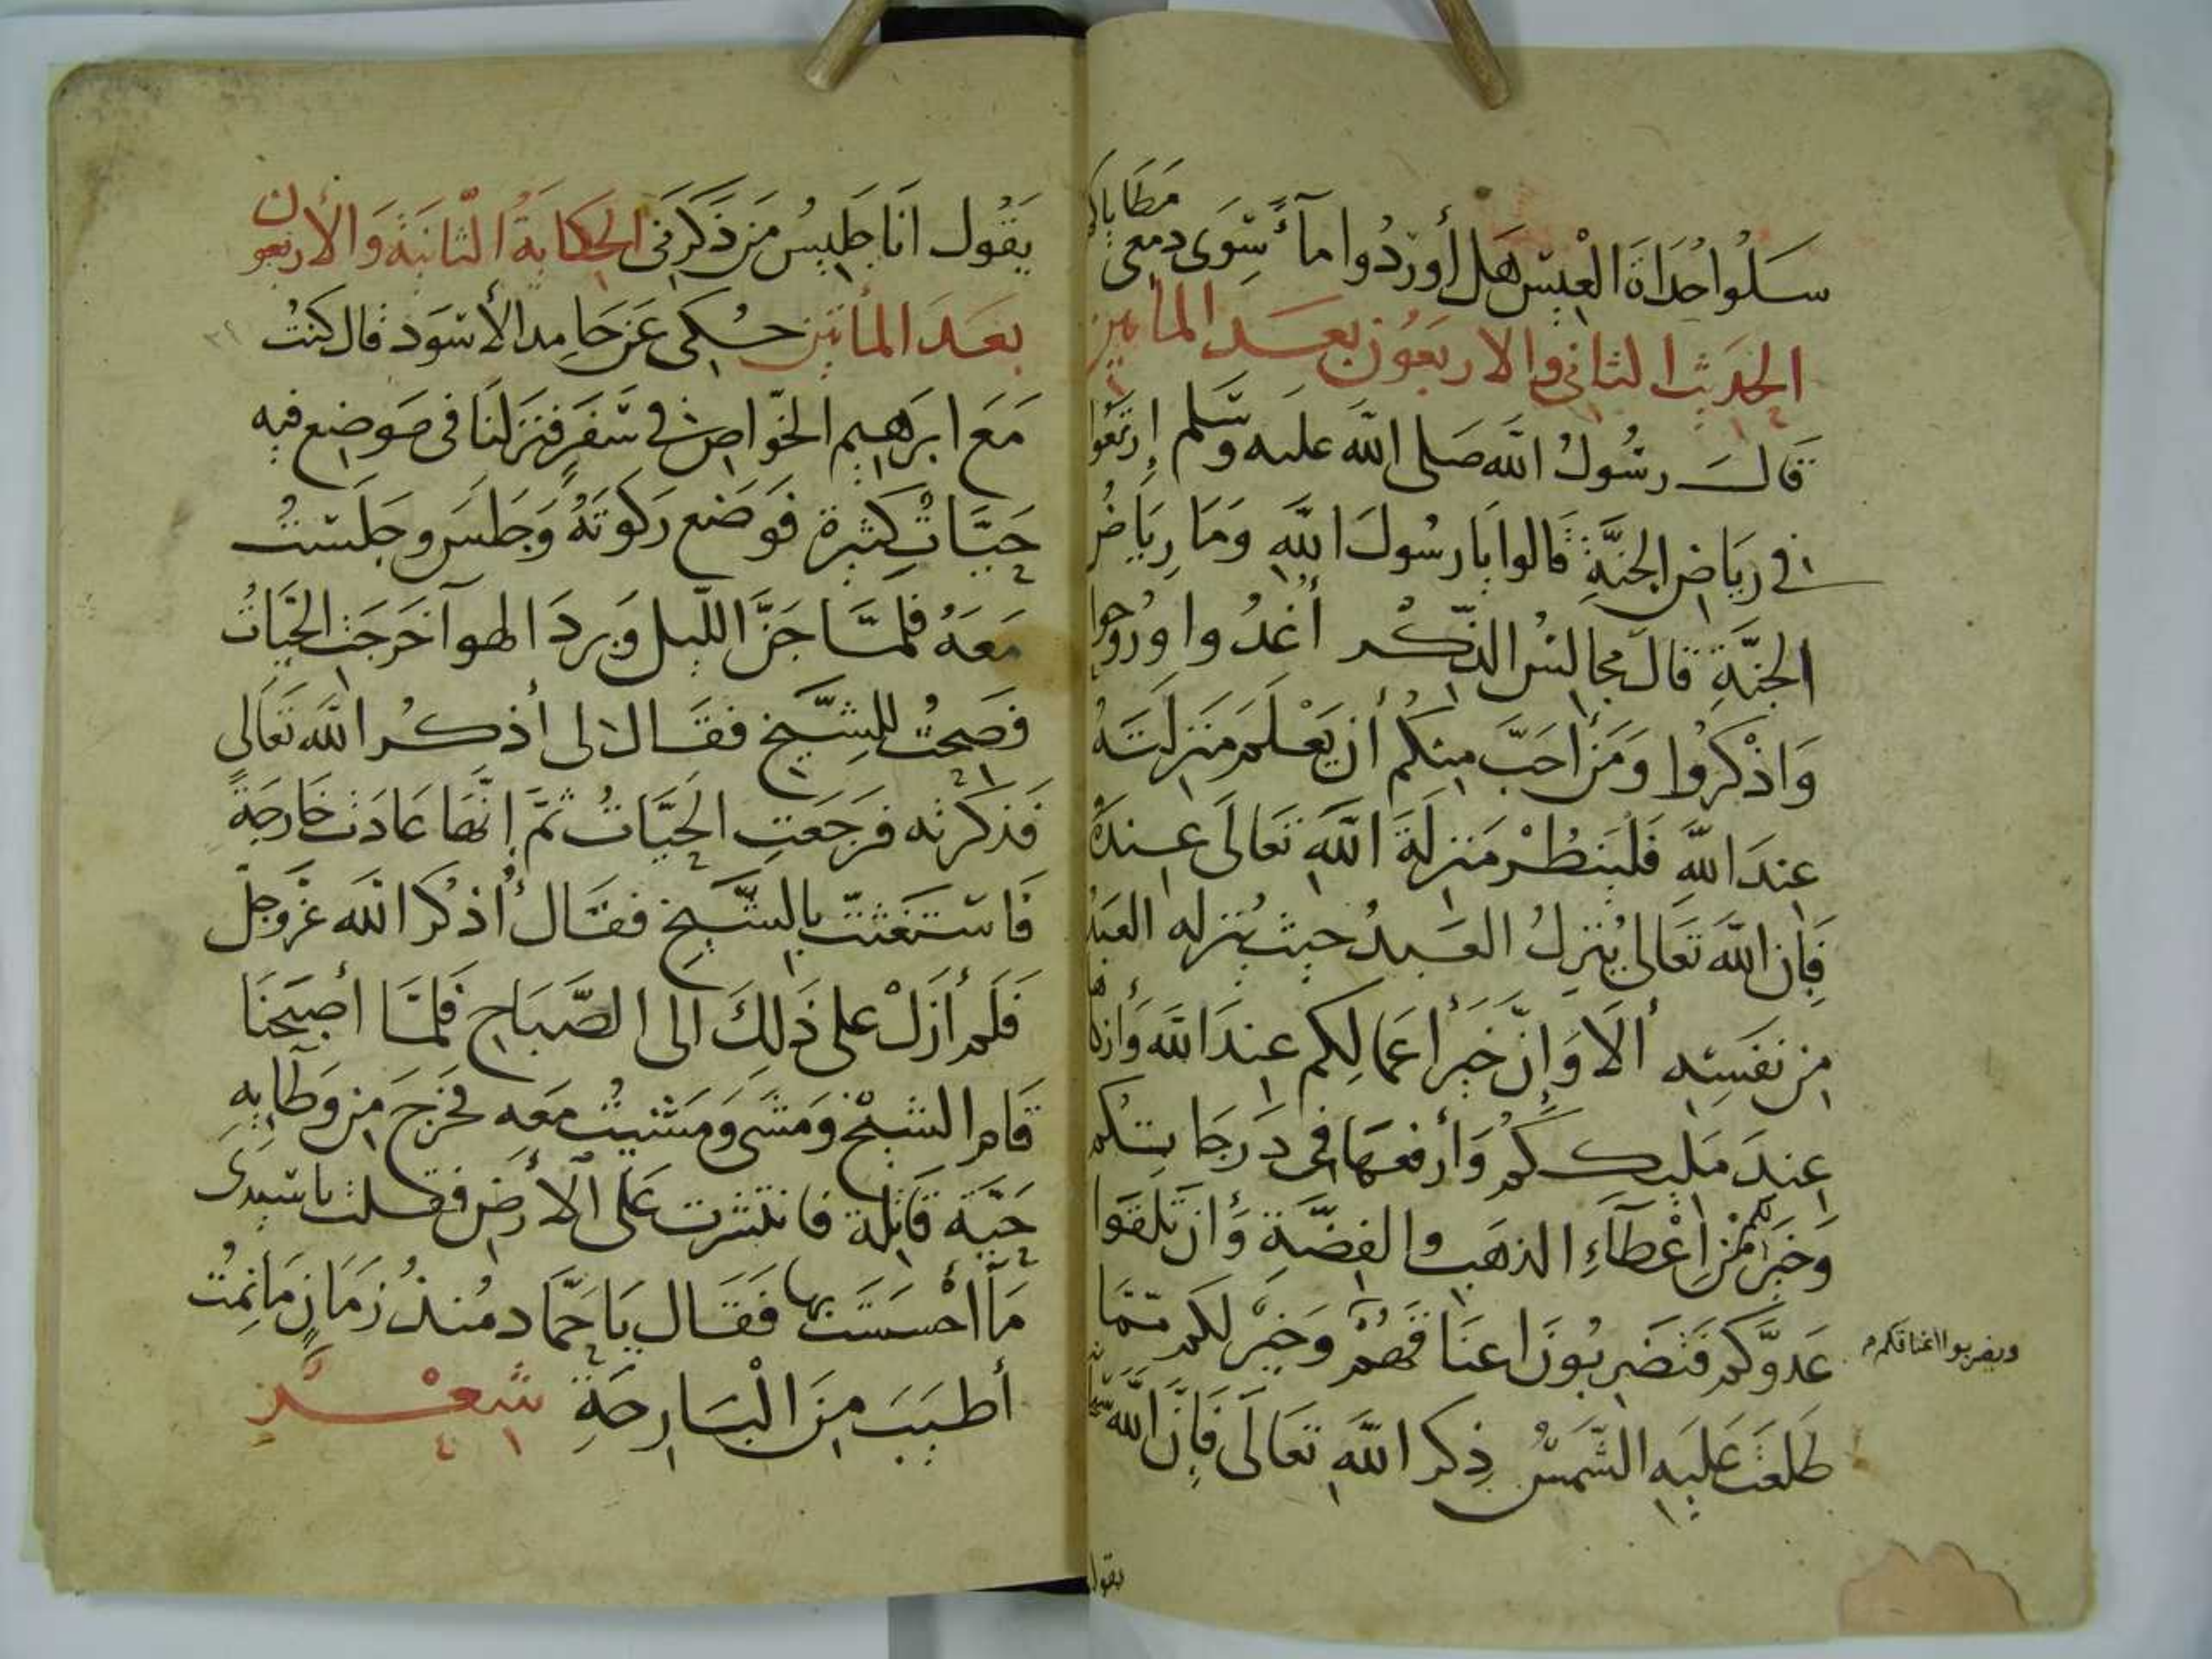 سَلُوا حُدَاةَ الْعِيسِ هَل أَورَدُوا مطاياكم
مآءً سِوَى دمعى
الحديث الثانى والاربعون بعد المأتين
قَالَ رسُولُ الله صَلى الله عليه وسَلم إرتَعُوا
فى رِيَاضِ الجَنَّةِ قَالوا يا رسُولَ اللهِ وَمَا رِيَاضُ
الجنَّةِ قالَ مجالسُ الذّكْر أغدُوا ورُوحوا
وَاذْكرُوا وَمَن أحَبَّ مِنكُم أن يَعْلَمَ مَنزِلَتَهُ
عندَ اللهِ فَليَنظُرْ مَنزِلَةَ اللهِ تَعَالَى عِندَهُ
فَإِن اللهَ تعَالى يُنزِلُ العَبدُ حيث يُنزله العَبدُ
مِن نَفسِه ألَا وَإِنّ خَيرَ أعمَالِكم عِندَ الله وَأزكاها
عِندَ مَلِيكِكُم وَأرفعهَا فى دَرَجَاتِكُم
وَخَيرٌ لكم مِن إعْطَآءِ الذهَبِ والفِضَّةِ وَأن تَلقَوا
عَدوَّكم فتَضرِبُونَ اعنَاقَهُمْ وخَيرٌ لكم ممّا
ويضربوا اعناقكم
طَلَعَت عَليهِ الشَّمسُ ذِكر اللهِ تَعَالَى فَإِنَّ اللهَ
يقول
يَقُول انَا جَلِيسُ مَن ذَكَرَنى الحكايةُ الثّانيَة وَالأربعون
بعَدَ المأتين حُكى عَن حَامِد الأسوَد قال كنتُ
مَعَ ابرَهيم الخوّاص فى سَفَرٍ فنزلنَا فى موضِع فيه
حَيَّاتٌ كثيرة فوَضَع رَكوَتَهُ وَجلسَ وجَلسْتُ
مَعَهُ فلمَّا جَنَّ اللّيل وَبردَ الهوآ خَرَجَت الحَيّاتُ
فَصِحتُ للشَّيخ فقَال لى أذكر اللهَ تَعَالى
فَذكرته فرَجَعَتِ الحَيَّاتُ ثمَّ إنّهَا عَادَت خَارِجَةً
فاستَغثت بالشَّيخِ فقَال أُذكر الله عَزَّ وجلّ
فَلَم أزَلْ على ذَلِكَ الى الصَّبَاح فَلمَّا أصبَحنَا
قَام الشيخ وَمشى وَمَشيتُ مَعَه فخَرجَ مِن وَطَآئهِ
حَيَّة قَاتِلة فانتثرت عَلى الأرض فقلت يا سَيّدى
مَآ أحْسَسْتَ بها فقَال يَا حَمّاد مُنذُ زَمَانٍ مَا نِمتُ
أطيَبَ مِنَ الْبَارِحَةِ شعْر